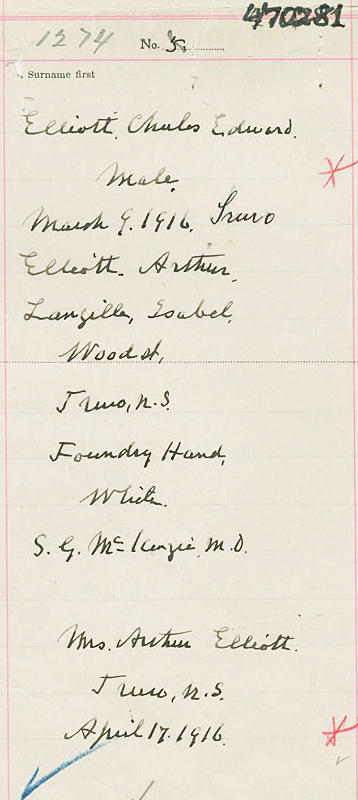 470281
1274 No.
Surname first
Elliott, Charles Edward.
Male,
March 9. 1916, Truro
Elliott. Arthur,
Langille, Isabel,
Wood st,
Truro, N.S.
Foundry Hand,
White.
S. G. McKenzie, M.D.
Mrs. Arthur Elliott.
Truro, N.S.
April 17. 1916.